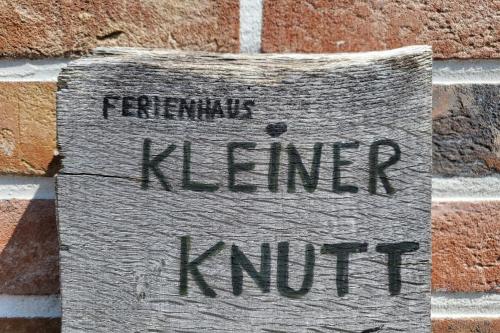 FERIENHAUS
KLEINER
KNUTT